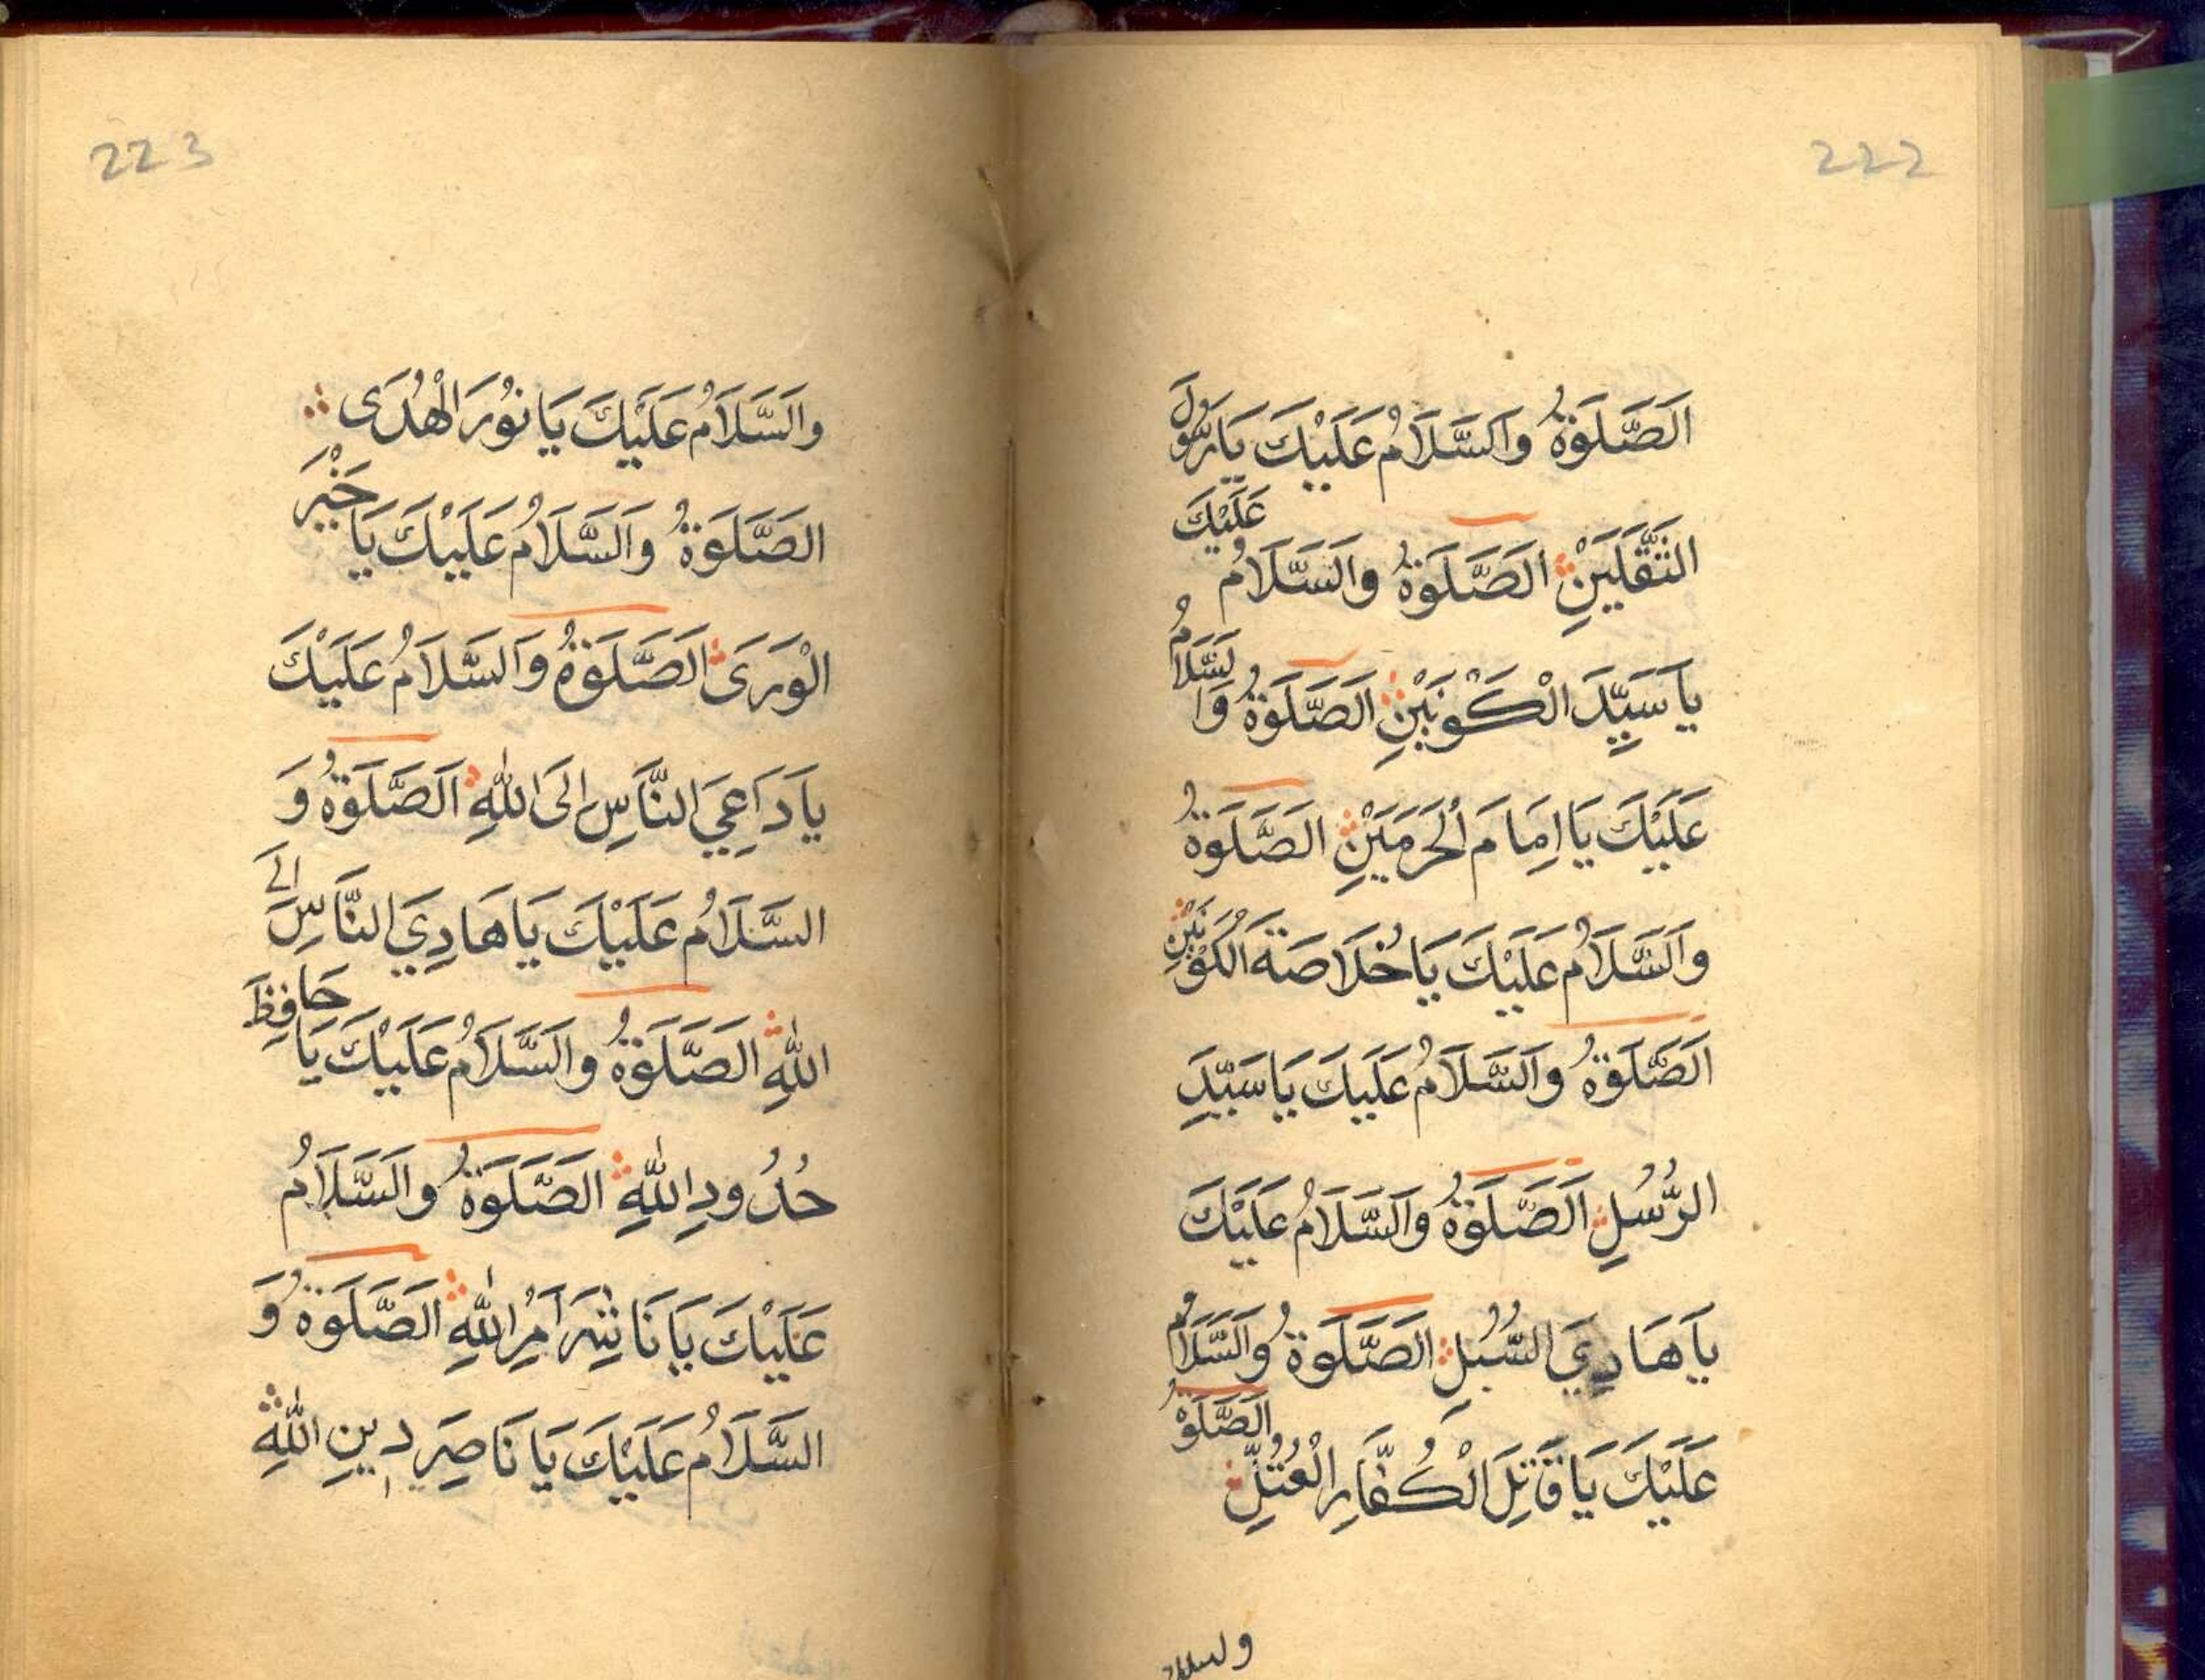 222
اَلصَّلَوٰةُ وَالسَّلَامُ عَلَيْكَ يَا رَسُولَ
الثَّقَلَيْنِ اَلصَّلَوٰةُ وَالسَّلَامُ عَلَيْكَ
يَا سَيِّدَ الْكَوْنَيْنِ اَلصَّلَوٰةُ وَالسَّلَامُ
عَلَيْكَ يَا اِمَامَ الْحَرَمَيْنِ الصَّلَوٰةُ
وَالسَّلَامُ عَلَيْكَ يَا خُلَاصَةَ الْكَوْنَيْنِ
اَلصَّلَوٰةُ وَالسَّلَامُ عَلَيْكَ يَا سَيِّدَ
الرُّسُلِ اَلصَّلَوٰةُ وَالسَّلَامُ عَلَيْكَ
يَا هَادِيَ السُّبُلِ الصَّلَوٰةُ وَالسَّلَامُ
عَلَيْكَ يَا قَاتِلَ الْكُفَّارِ الْعُتُلِّ الصَّلَوٰةُ
والسلام
223
وَالسَّلَامُ عَلَيْكَ يَا نُورَ الْهُدَى
الصَّلَوٰةُ وَالسَّلَامُ عَلَيْكَ يَا خَيْرَ
الْوَرَى الصَّلَوٰةُ وَالسَّلَامُ عَلَيْكَ
يَا دَاعِيَ النَّاسِ اِلَى اللهِ اَلصَّلَوٰةُ وَ
السَّلَامُ عَلَيْكَ يَا هَادِيَ النَّاسِ اِلَى
اللهِ الصَّلَوٰةُ وَالسَّلَامُ عَلَيْكَ يَا حَافِظَ
حُدُودِ اللهِ الصَّلَوٰةُ وَالسَّلَامُ
عَلَيْكَ يَا نَاشِرَ اَمْرِ اللهِ الصَّلَوٰةُ وَ
السَّلَامُ عَلَيْكَ يَا نَاصِرَ دِينِ اللهِ